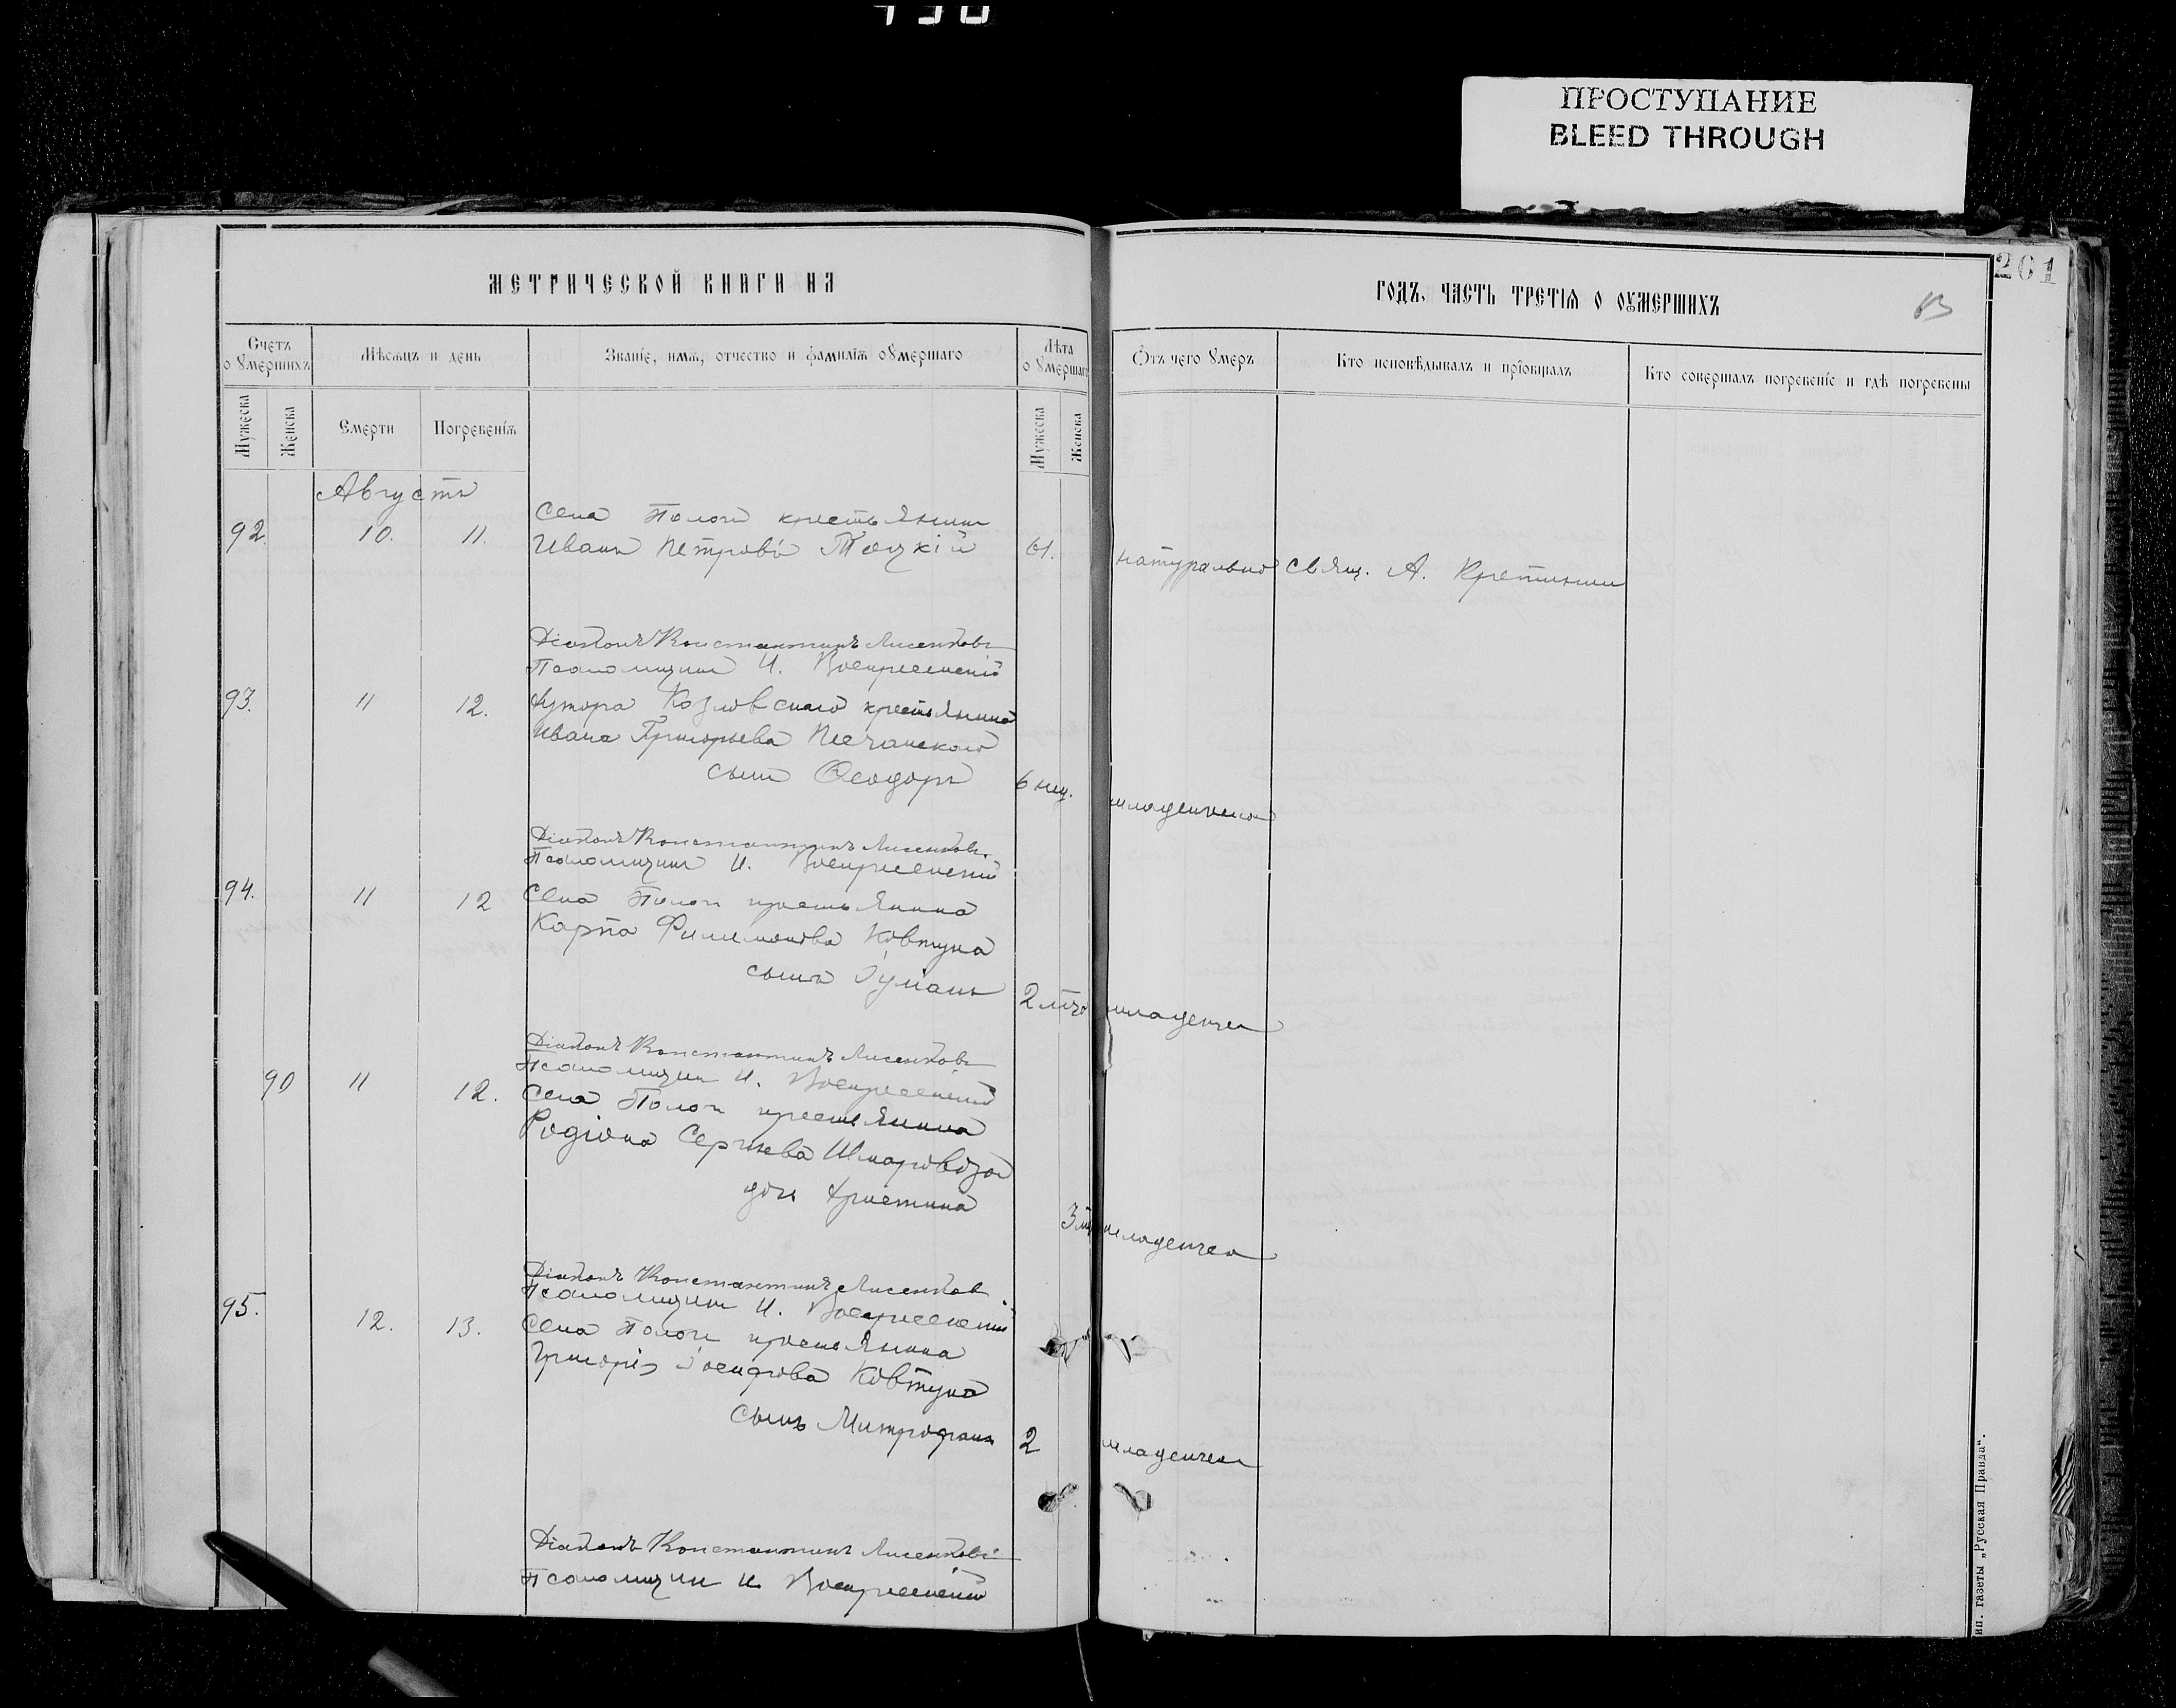 ПРОСТУПАНИЕ
BLEED THROUGH
201
МЕТРИЧЕСКОЙ КНИГИ НА
ГОДЪ, ЧАСТЬ ТРЕТІѦ О ОУМЕРШИХЪ
Счетъ оумершихъ
Мѣсѧцъ и день
Званіе, имѧ, отчество и фамиліѧ оумершаго
Лѣта оумершаго
Отъ чего умеръ
Кто исповѣдывалъ и пріобщалъ
Кто совершалъ погребеніе и гдѣ погребены
Мужеска
Женска
Смерти
Погребеніѧ
Мужеска
Женска
Августъ
92. 10. 11.
Села Пологи крестьянинъ
Иванъ Петровъ Тоцкій 61. натурально свящ. А.
Діаконъ Константинъ Лисенковъ
Псаломщикъ И. Воскресенскій
93. 11 12.
хутора Козловскаго крестьянина
Ивана Григорьева Песчанскаго
сынъ Ѳеодоръ 6 нед. младенческ
Діаконъ Константинъ Лисенковъ
Псаломщикъ И. Воскресенскій
94. 11 12
Села Пологи крестьянина
Карпа Филимонова Ковтуна
сынъ Іуліанъ 2 младенческ
Діаконъ Константинъ Лисенковъ
Псаломщикъ И. Воскресенскій
90 11 12.
Села Пологи крестьянина
Родіона Сергѣева Шкаровоза
дочь Христина 3 младенческ
Діаконъ Константинъ Лисенков
Псаломщикъ И. Воскресенскій
95. 12. 13.
Села Пологи крестьянина
Григорія Іосифова Ковтуна
сынъ Митрофанъ 2 младенческ
Діаконъ Константинъ Лисенковъ
Псаломщикъ И. Воскресенскій
ип. газеты „Русская Правда“.